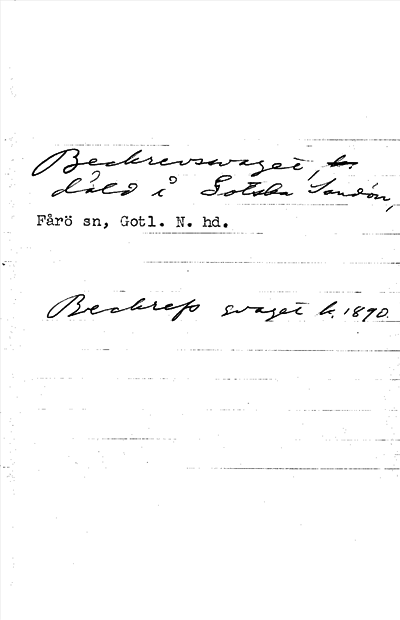 Beckrevsvaget,
dåld i Gotska Sandön,
Fårö sn, Gotl. N. hd.
Beckrefs svaget k. 1890.